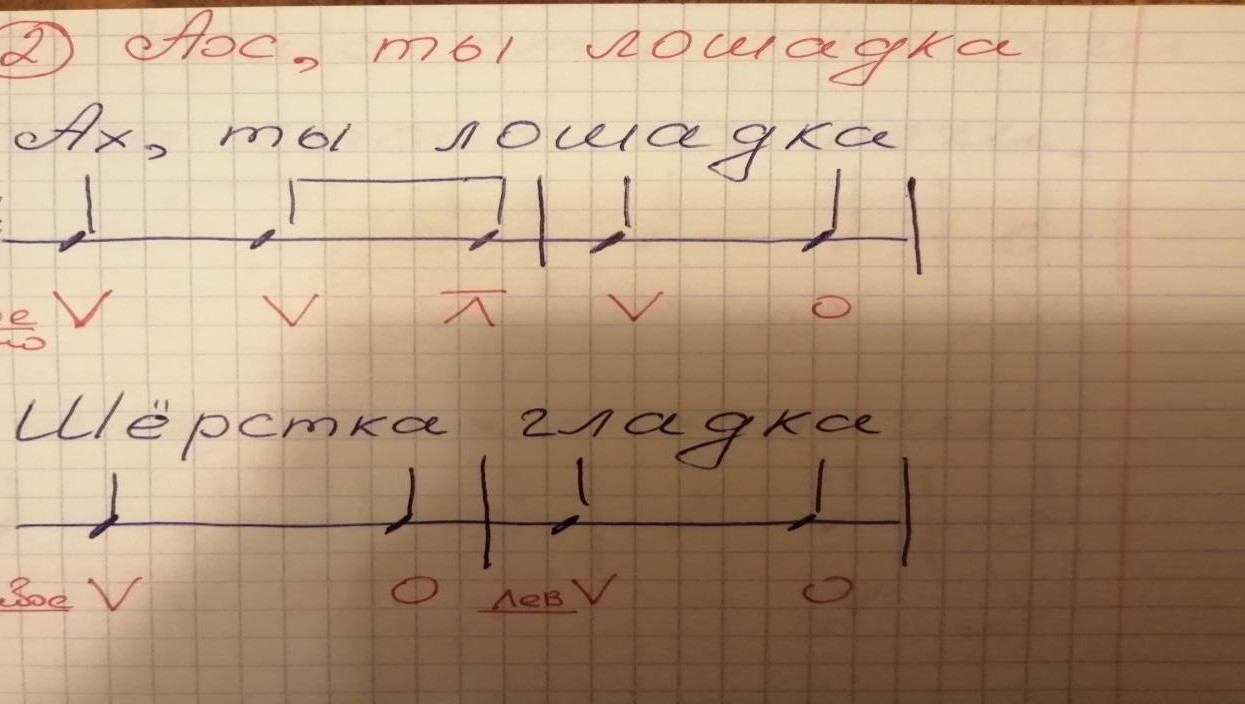 2) Ах, ты лошадка
Ах, ты лошадка
V V Λ V O
Шёрстка гладка
V O лев V O